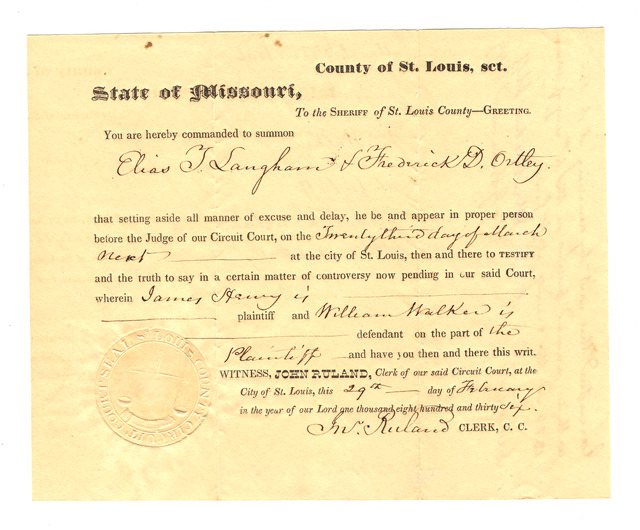 County of St. Louis, sct.
State of Missouri,
To the SHERIFF of St. Louis County—GREETING.
You are hereby commanded to summon
Elias T. Langham & Frederick D. Ortley.
that setting aside all manner of excuse and delay, he be and appear in proper person
before the Judge of our Circuit Court, on the Twenty third day of March
next at the city of St. Louis, then and there to TESTIFY
and the truth to say in a certain matter of controversy now pending in our said Court,
wherein James Henry is
plaintiff and William Walker is
defendant on the part of the
Plaintiff and have you then and there this writ.
WITNESS, JOHN RULAND, Clerk of our said Circuit Court, at the
City of St. Louis, this 29th day of February
in the year of our Lord one thousand eight hundred and thirty six.
Jno. Ruland CLERK, C. C.
ST LOUIS COUNTY CIRCUIT COURT SEAL